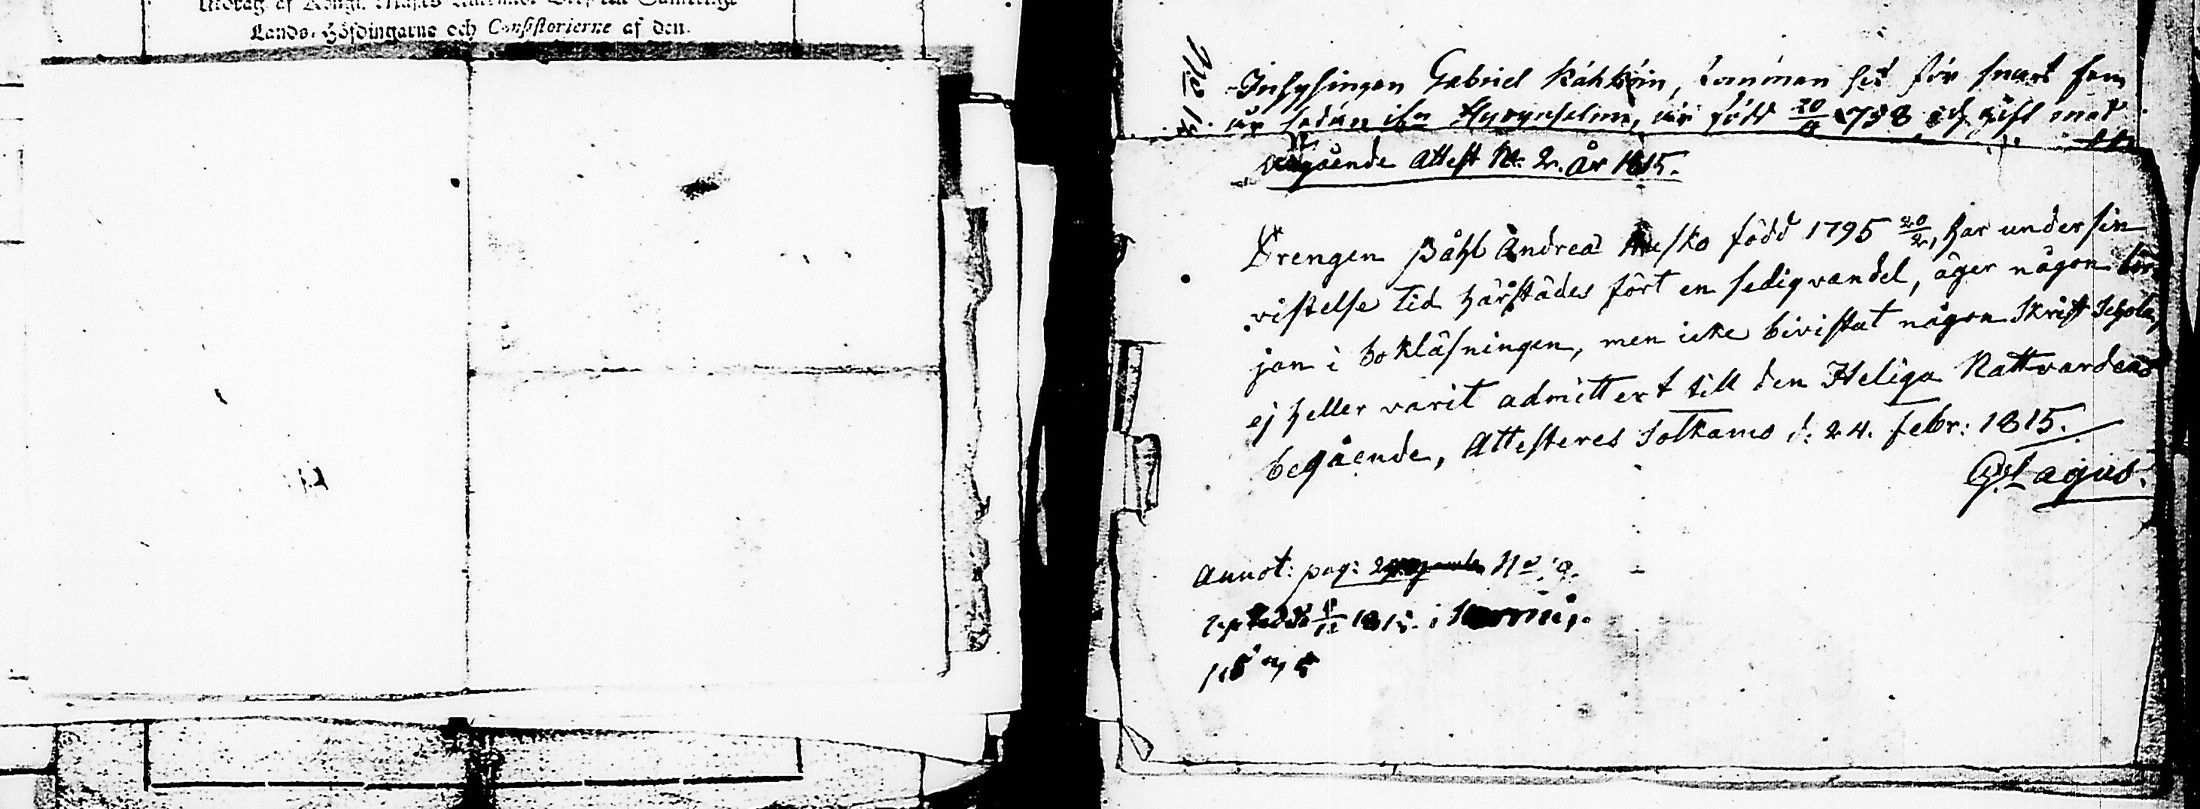 Utdrag af Kongl. Maj:ts Samtelige
Lands-Höfdingarne och Consistorierne af den.
No 14. Inhysingen Gabriel Kähkö̈nen, kommen hit för snart fem
år sedan ifrn Hyrynsalmi, är född 20/11 1758 och gift med
Utgående Attest No. 2. År 1815.
Drengen Påhl Andreas Husko född 1795 20/2, har under sin
vistelse tid härstädes fört en sedig vandel, äger någon bör
jan i bokläsningen, men icke bivistat någon Skrift Schola,
ej heller varit admitterd till den Heliga Nattvardens
begående, Attesteres Sotkamo d: 24. febr: 1815.
G. Lagus.
Annot: pag: No 9.
1815. i